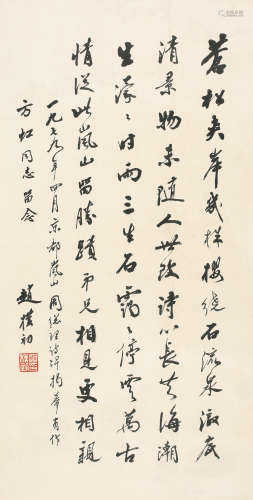 蒼松夾岸幾株櫻繞石流泉澈底
清景物未隨人世改詩心長共海潮
生濛濛時雨三生石靄靄停雲萬古
情從此嵐山留勝蹟弟兄相見更相親
一九七九年四月京都嵐山周總理詩碑揭幕有作
方虹同志留念
趙樸初